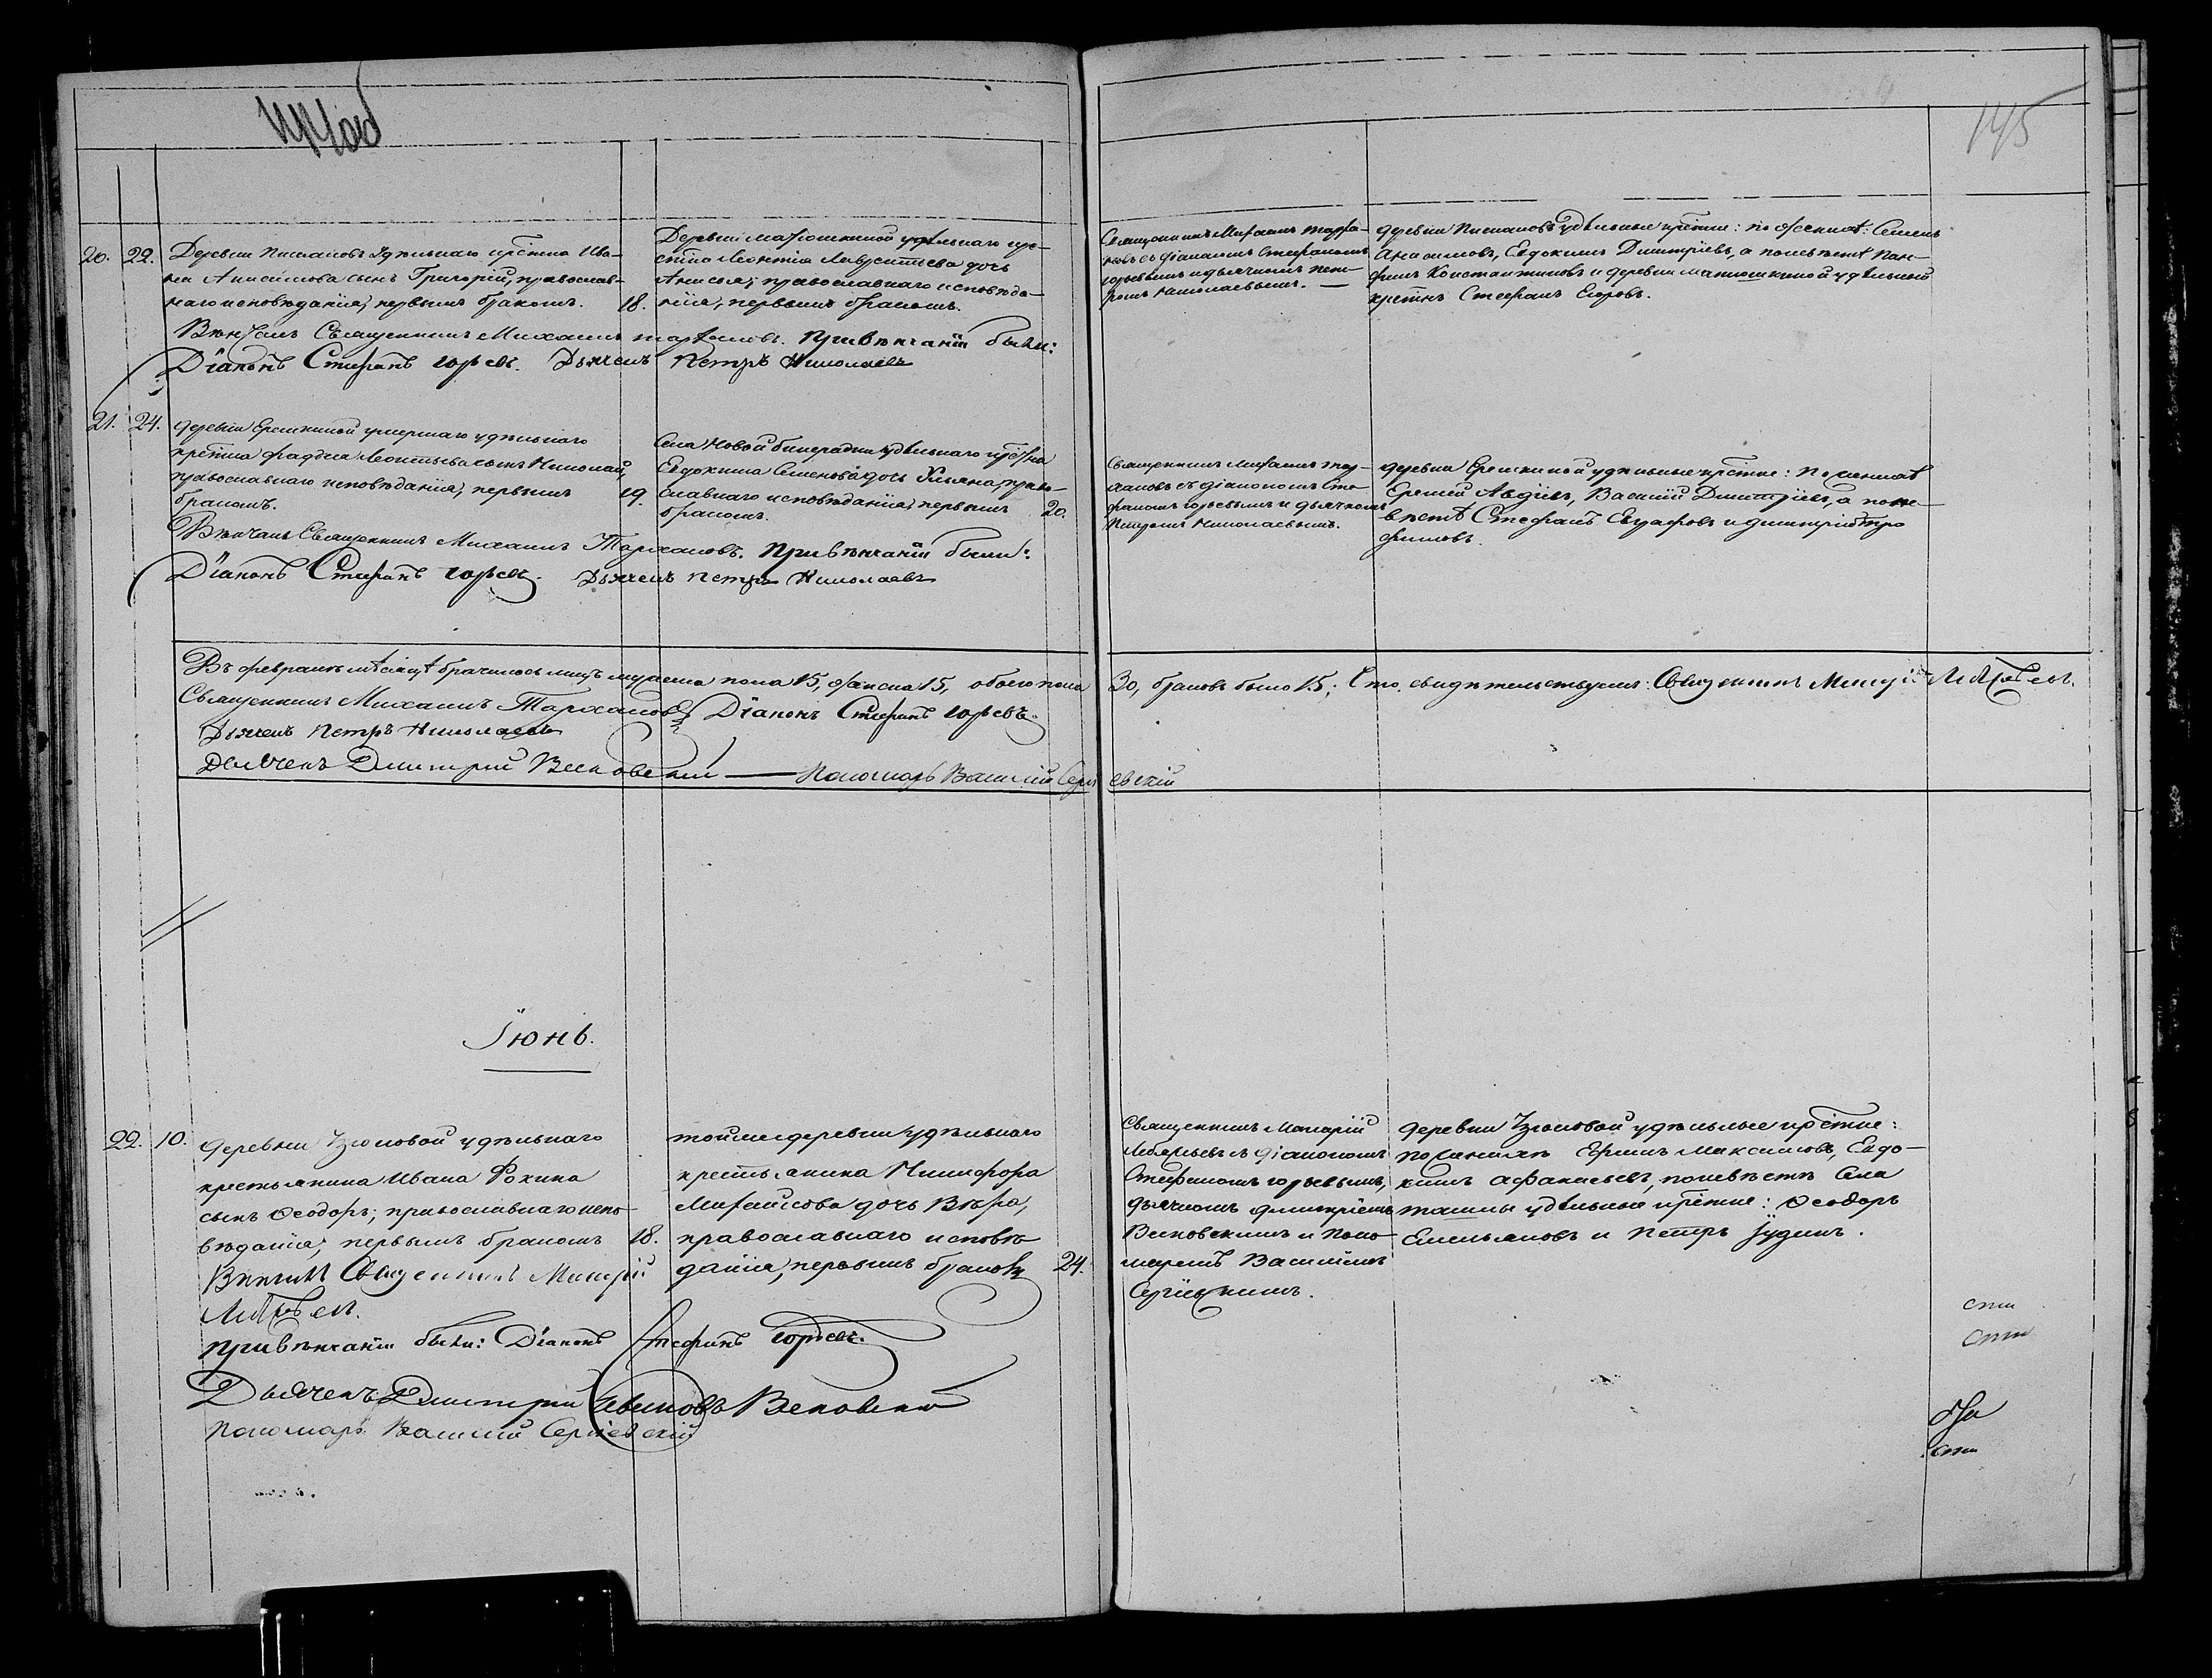 145
20. 22. Деревни Писмановъ Удѣльнаго крестина Ива-
на Анисимова сынъ Григорій, православ-
наго исповѣданія, первымъ бракомъ. 18.
Деревни Матюшкиной удѣльнаго кре-
стина Леонтія Лаврентьева дочь
Анисья, православнаго исповѣда-
нія, первымъ бракомъ.
Священникъ Михаилъ Тарха-
новъ съ діакономъ Стефаномъ
горьевымъ и дьячкомъ Пет-
ромъ Николаевымъ. —
деревни Писмановъ удѣльные крестине: по женихѣ: Семенъ
Анисимовъ, Евдокимъ Димитріевъ, а по невѣстѣ Пан-
филъ Константиновъ и деревни матюшкиной удѣльной
крестнъ Стефанъ Егоровъ.
Вѣнчалъ Священникъ Михаилъ Тархановъ. При вѣнчаніи были:
Діаконъ Стефанъ горьевъ. Дьячекъ Петръ Николаевъ
21. 24. деревни Ерешкиной умершаго удѣльнаго
крестина фаддея Леонтьева сынъ Николай,
православнаго исповѣданія, первымъ 19.
бракомъ.
Села Новой бинарадки удѣльнаго крест на
Евдокима Семенова дочь Ульяна, право-
славнаго исповѣданія, первымъ 20.
бракомъ.
Священникъ Михаилъ Тар-
хановъ съ діакономъ Сте-
фаномъ горьевымъ и дьячкомъ
Петромъ Николаевымъ.
деревни Ерешкиной удѣльные крестине: По женихѣ
Еремѣй Авдѣевъ, Василій Димитріевъ, а по не-
вѣстѣ Стефанъ Евграфовъ и димитрій Тро
фимовъ.
Вѣнчалъ Священникъ Михаилъ Тархановъ. При вѣнчаніи были:
Діаконъ Стефанъ горьевъ. Дьячекъ Петръ Николаевъ
Въ февралѣ мѣсяцѣ брачилось лицъ мужеска пола 15, женска 15, обоего пола 30, браковъ было 15; Сто свидѣтельствуемъ: Священникъ Макарій Лебедевъ.
Священникъ Михаилъ Тархановъ Діаконъ Стефанъ горьевъ.
Дьячекъ Петръ Николаевъ
Дьячекъ Димитрій Весновскій — Пономарь Василій Сергіевскій
Іюнь.
22. 10. деревни Узюковой удѣльнаго
крестьянина Ивана Фокина
сынъ Ѳеодоръ; православнаго испо
вѣданія; первымъ бракомъ 18.
той же деревни удѣльнаго
крестьянина Никифора
Моисѣова дочь Вѣра,
православнаго исповѣ
данія, первымъ бракомъ 24.
Священникъ Макарій
Лебедевъ съ діакономъ
Стефаномъ горьевымъ,
дьячкомъ димитріемъ
Весновскимъ и Поно
маремъ Василіемъ
Сергіевскимъ.
деревни Узюковой удѣльные крестине:
по женихѣ Ермилъ Максимовъ, Евдо-
кимъ афанасьевъ, по невѣстѣ Села
ташлы удѣльные крестине: Ѳеодоръ
Емельяновъ и Петръ Іудинъ.
Вѣнчалъ Священникъ Макарій
Лебедевъ.
При вѣнчаніи были: Діаконъ Стефанъ горьевъ.
Дьячекъ Димитрій Весновскій
Пономарь Василій Сергіевскій